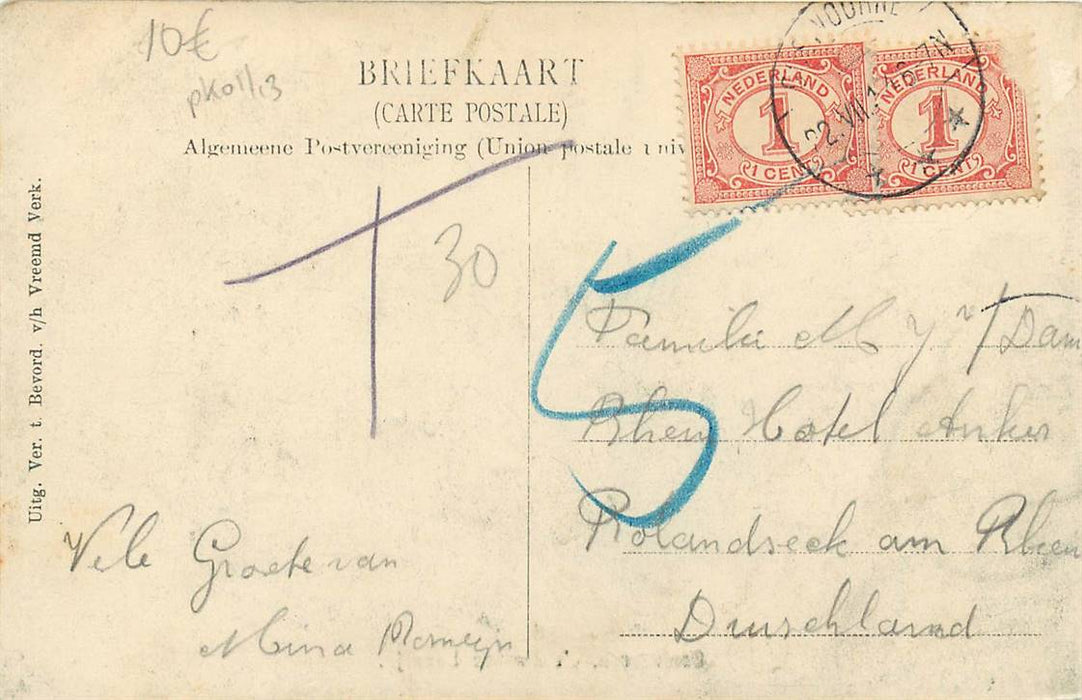 10€
pk01/13
BRIEFKAART
(CARTE POSTALE)
Algemeene Postvereeniging (Union postale univ
NEDERLAND
1
1 CENT
NEDERLAND
1
1 CENT
Uitg. Ver. t. Bevord. v/h Vreemd Verk.
T
30
5
Familie M y v/ Dam
Rhein Hotel Anker
Rolandseck am Rhein
Duischland
Vele Groete van
Mina Romeijn